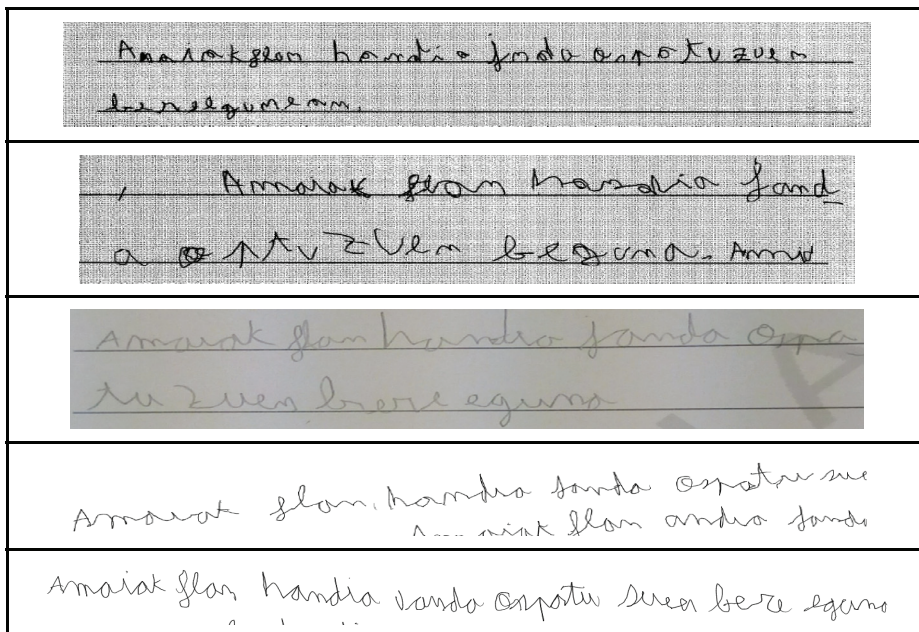 Amaiakflan handia janda ospotu zuen
bereegunean.
Amaiak flan handia fand
a osptu zuen beguna. Amai
Amaiak flan handia fanda ospa
tu zuen bere eguna
Amaiak flan handia janda ospatu sue
Amaiak flan andia janda
Amaiak flan handia vanda ospatu suen bere eguno